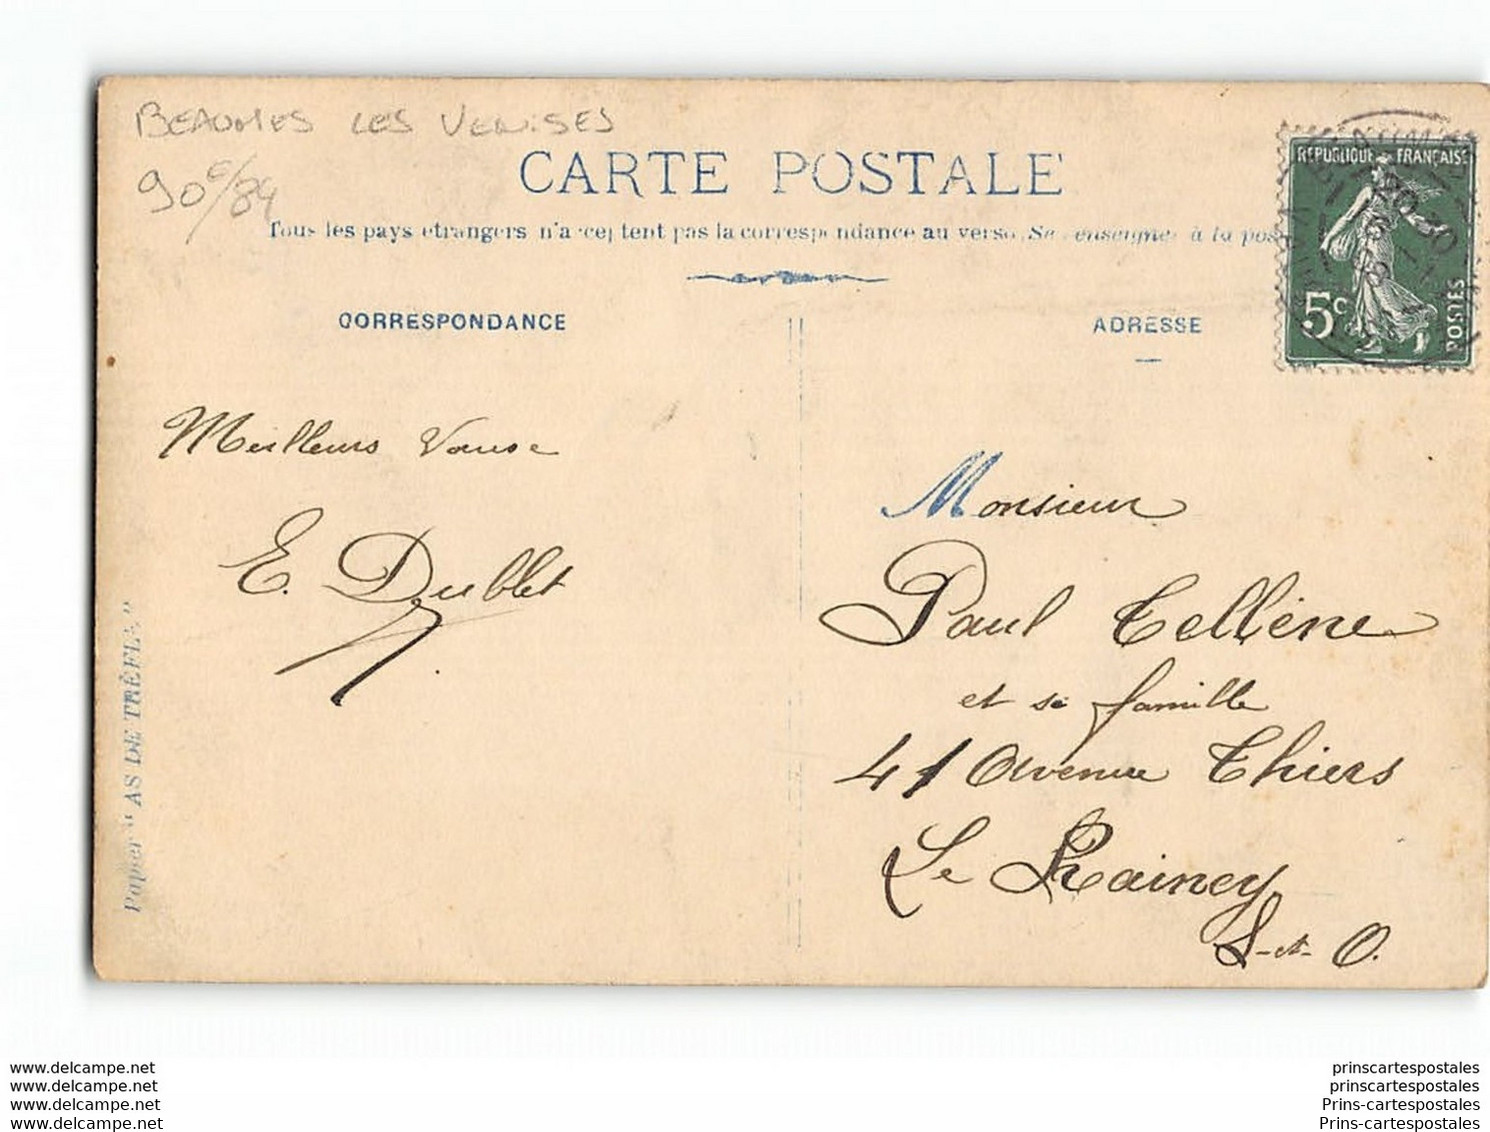 BEAUMES LES VENISES
90€/84
CARTE POSTALE
Tous les pays étrangers n'acceptent pas la correspondance au verso. Se renseigner à la poste
CORRESPONDANCE
ADRESSE
REPUBLIQUE FRANÇAISE
5c
POSTES
Meilleurs
E. Dublet
Monsieur
Paul Tellène
et sa famille
41 Avenue Thiers
Le Raincy
S-et-O.
Papier "AS DE TRÈFLE"
www.delcampe.net
www.delcampe.net
www.delcampe.net
www.delcampe.net
prinscartespostales
prinscartespostales
Prins-cartespostales
Prins-cartespostales